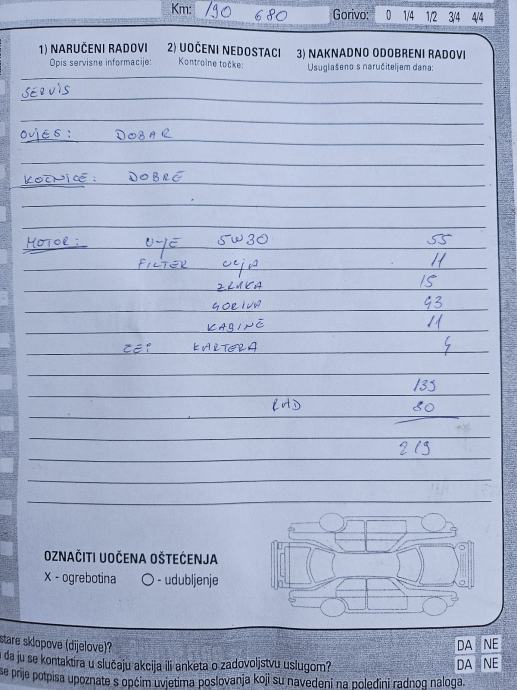 Km: 190 680 Gorivo: 0 1/4 1/2 3/4 4/4
1) NARUČENI RADOVI 2) UOČENI NEDOSTACI 3) NAKNADNO ODOBRENI RADOVI
Opis servisne informacije: Kontrolne točke: Usuglašeno s naručiteljem dana:
SERVIS
OVJES: DOBAR
KOČNICE: DOBRE
MOTOR: ULJE 5W30 55
FILTER ULJA 11
ZRAKA 15
GORIVA 43
KABINE 11
ČEP KARTERA 4
139
RAD 80
219
OZNAČITI UOČENA OŠTEĆENJA
X - ogrebotina O - udubljenje
stare sklopove (dijelove)? DA NE
da ju se kontaktira u slučaju akcija ili anketa o zadovoljstvu uslugom? DA NE
se prije potpisa upoznate s općim uvjetima poslovanja koji su navedeni na poleđini radnog naloga.